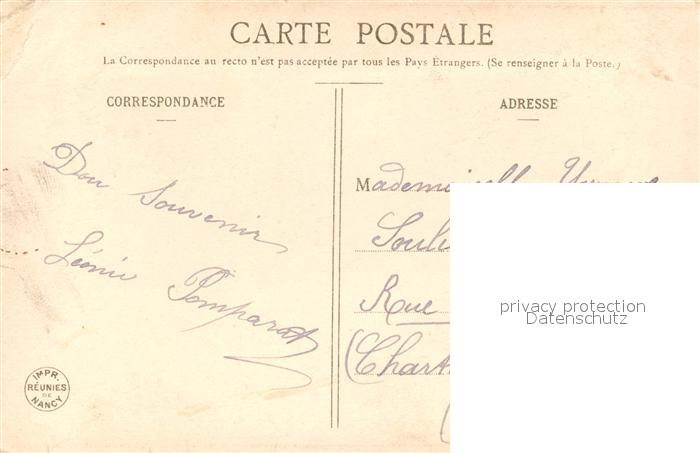 CARTE POSTALE
La Correspondance au recto n'est pas acceptée par tous les Pays Étrangers. (Se renseigner à la Poste.)
CORRESPONDANCE
Bon Souvenir
Léonie Pomparat
IMPR.
RÉUNIES
DE
NANCY
ADRESSE
Mademoiselle
Rue
privacy protection
Datenschutz